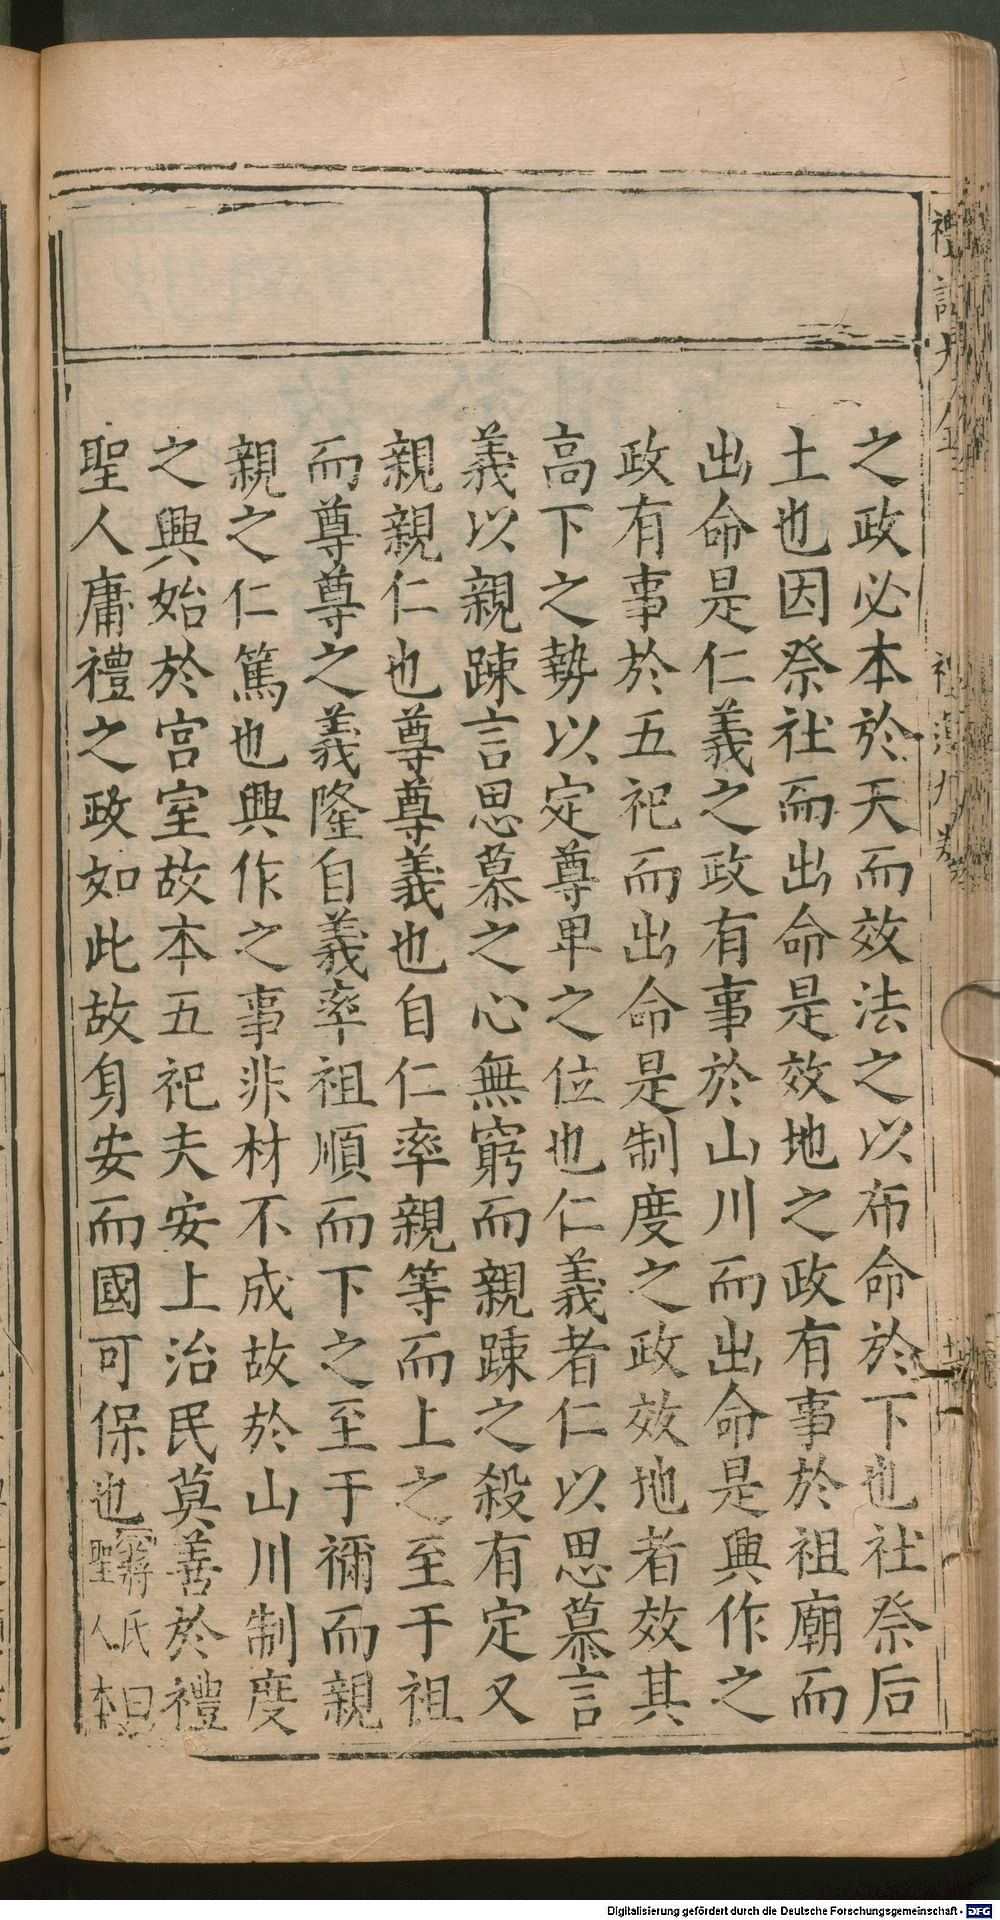 之政必本於天而效法之以布命於下也社祭后
土也因祭社而出命是效地之政有事於祖廟而
出命是仁義之政有事於山川而出命是興作之
政有事於五祀而出命是制度之政效地者效其
高下之勢以定尊卑之位也仁義者仁以思慕言
義以親踈言思慕之心無窮而親踈之殺有定又
親親仁也尊尊義也自仁率親等而上之至于祖
而尊尊之義隆自義率祖順而下之至于禰而親
親之仁篤也興作之事非材不成故於山川制度
之興始於宮室故本五祀夫安上治民莫善於禮
聖人庸禮之政如此故身安而國可保也
蔣氏曰
聖人本
禮記大全
禮運九卷
Digitalisierung gefördert durch die Deutsche Forschungsgemeinschaft - DFG